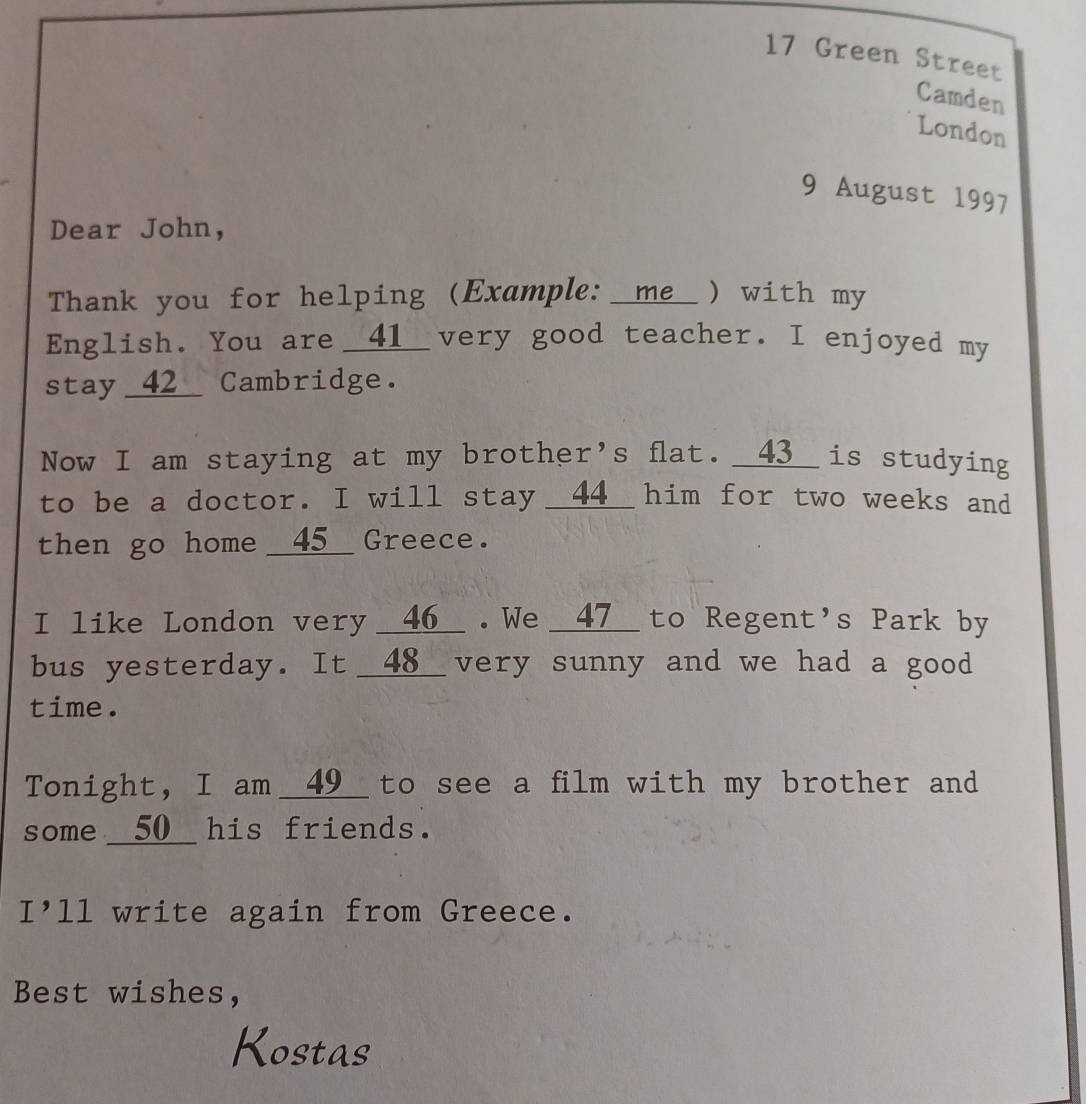 17 Green Street
Camden
London
9 August 1997
Dear John,
Thank you for helping (Example: me ) with my
English. You are 41 very good teacher. I enjoyed my
stay 42 Cambridge.
Now I am staying at my brother's flat. 43 is studying
to be a doctor. I will stay 44 him for two weeks and
then go home 45 Greece.
I like London very 46 . We 47 to Regent's Park by
bus yesterday. It 48 very sunny and we had a good
time.
Tonight, I am 49 to see a film with my brother and
some 50 his friends.
I'll write again from Greece.
Best wishes,
Kostas